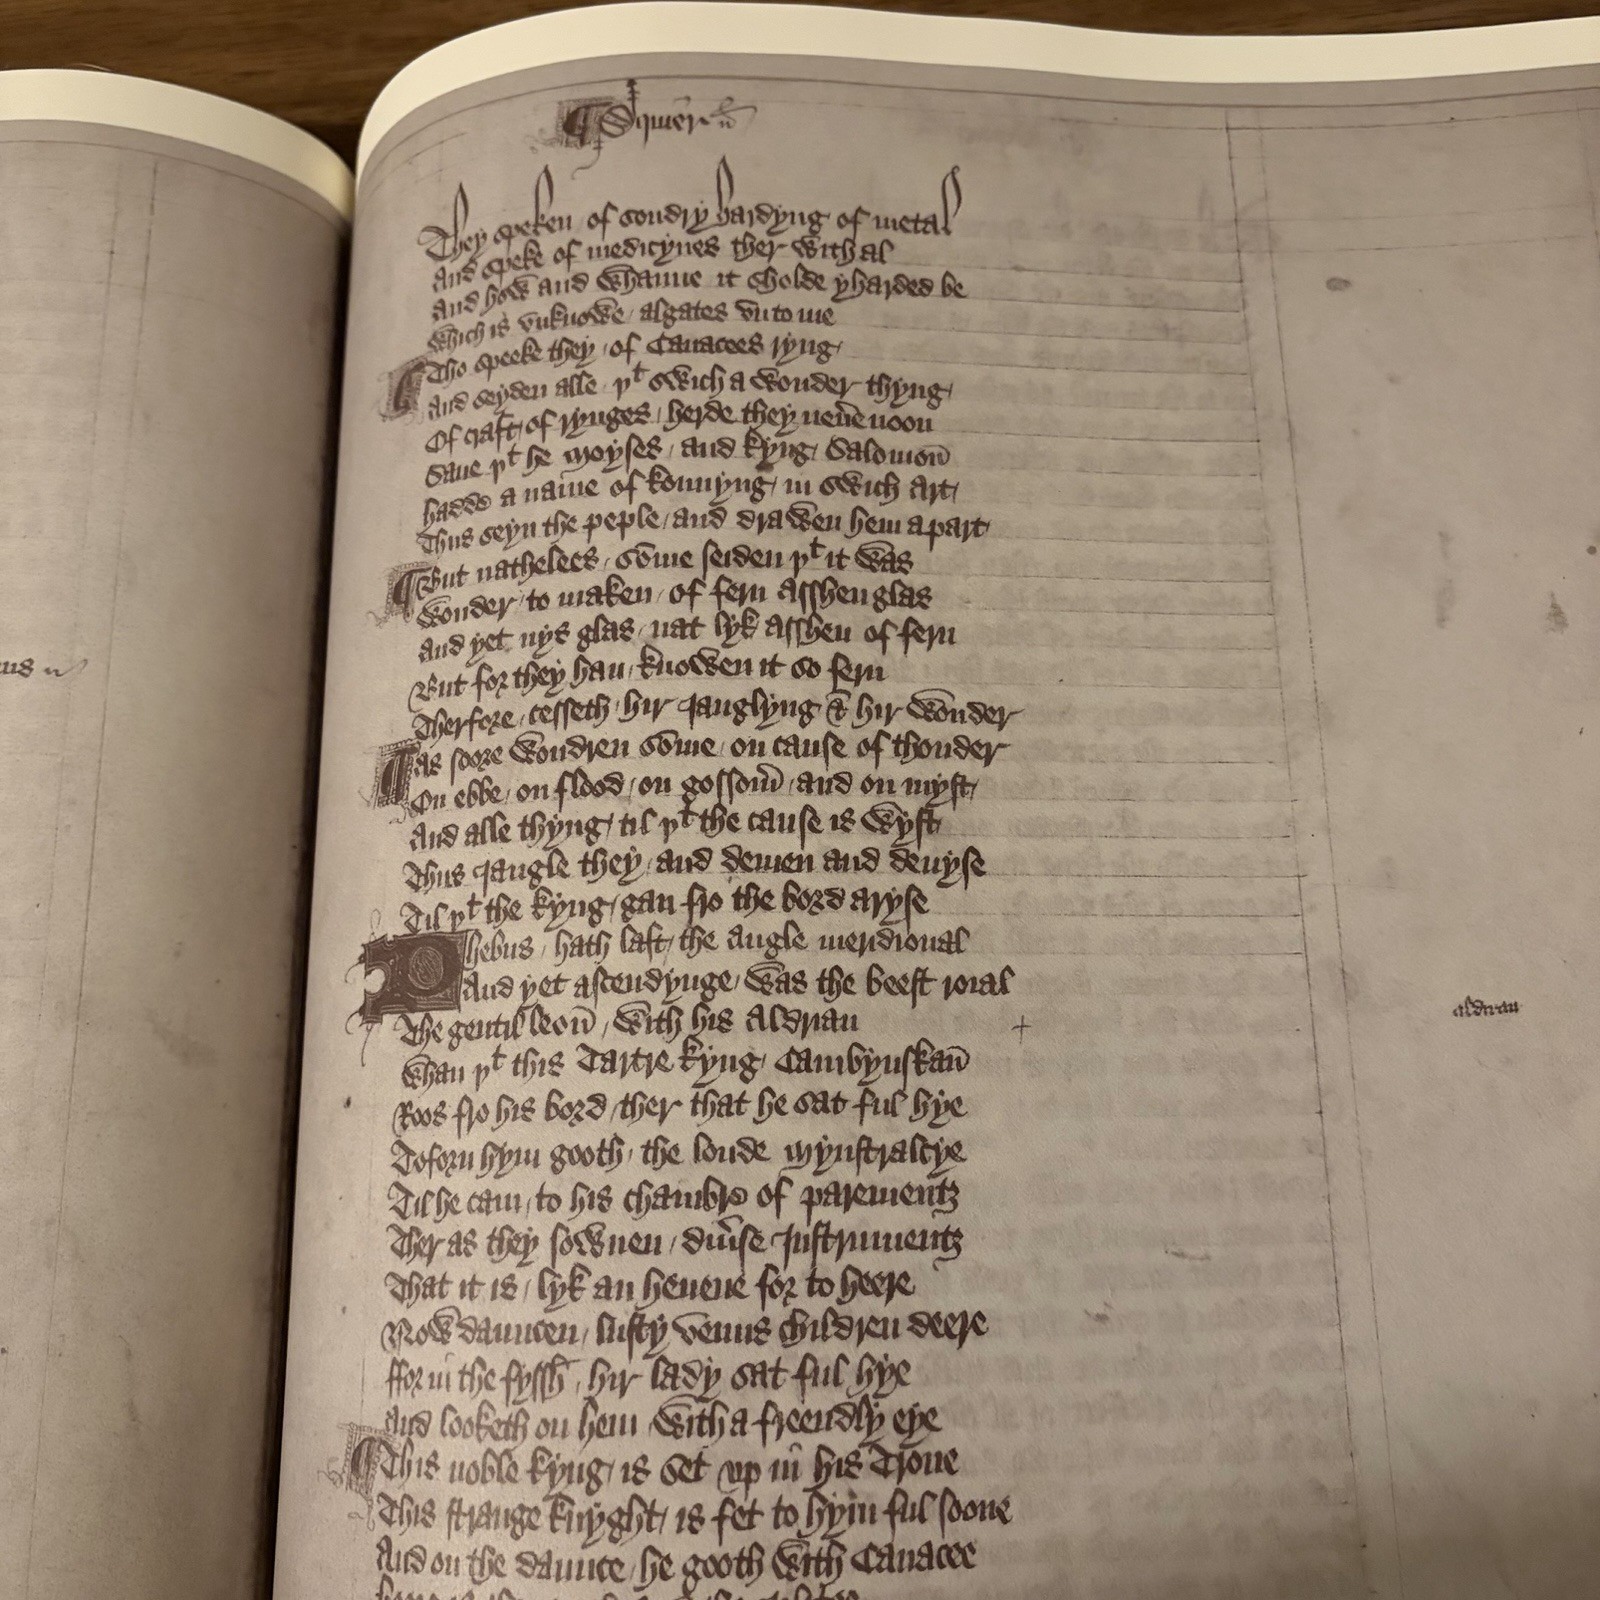 us
¶ Squier
They speken of sondry hardyng of metal
And speke of medicynes ther with al
And how and whanne it sholde yharded be
Which is vnknowe algates vn to me
Tho speeke they of Canacees ryng
And seyden alle þt swich a wonder thyng
Of craft of rynges herde they neuͤe noon
Saue þt he Moyses and kyng Salomon̄
hadde a name of konnyng in swich Art
Thus seyn the peple and drawen hem apart
¶ But nathelees some seiden þt it was
Wonder to maken of fern Asshen glas
And yet nys glas nat lyk Asshen of fern
But for they han knowen it so fern
Therfore cesseth hir Ianglyng & hir wonder
¶ As soore wondren some on cause of thonder
On ebbe on flood on gossom̄ and on myst
And alle thyng til þt the cause is wyst
Thus Iangle they and demen and deuyse
Til þt the kyng gan fro the bord aryse
Phebus hath laft the Angle meridional
And yet ascendynge was the beest roial
The gentil leon̄ with his Aldran aldran
Whan þt this Tartre kyng Cambynskan̄
Roos fro his bord ther that he sat ful hye
Toforn hym gooth the loude Mynstralcye
Til he cam to his chambre of parementz
Ther as they sownen diu̕se Instrumentz
That it is lyk an heuene for to heere
Now dauncen lusty Venus children deere
ffor in the fyssh hir lady sat ful hye
And looketh on hem with a freendly eye
¶ This noble kyng is set vp in his Trone
This strange knyght is fet to hym ful soone
And on the daunce he gooth with Canacee